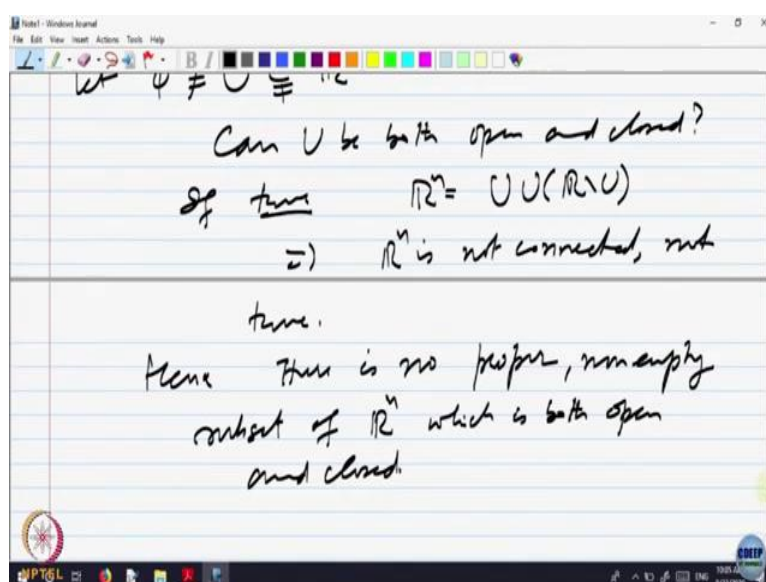 Note1 - Windows Journal
File Edit View Insert Actions Tools Help
Let φ ≠ U ⊊ ℝⁿ
Can U be both open and closed?
If true ℝⁿ = U ∪ (ℝ \ U)
=) ℝⁿ is not connected, not
true.
Hence There is no proper, nonempty
subset of ℝⁿ which is both open
and closed.
NPTEL
CDEEP
ENG